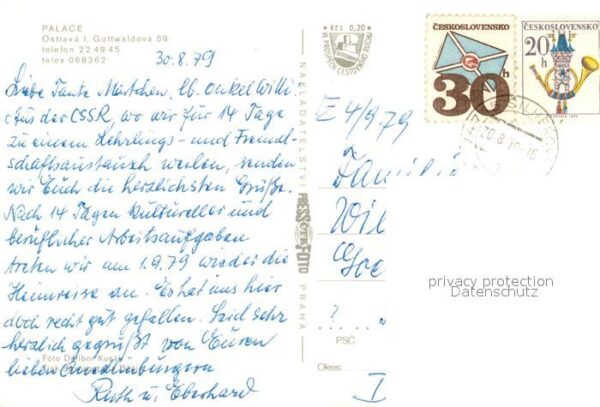 PALACE
Ostrava I, Gottwaldova 59
telefon 22 49 45
telex 068362
30.8.79
Liebe Tante Martchen, lb. Onkel Willi!
Aus der CSSR, wo wir für 14 Tage
zu einem Lehrlings- und Freund-
schaftsaustausch weilen, senden
wir Euch die herzlichsten Grüße.
Nach 14 Tagen kultureller und
beruflicher Arbeitsaufgaben
treten wir am 1.9.79 wieder die
Heimreise an. Es hat uns hier
doch recht gut gefallen. Seid sehr
herzlich gegrüßt von Euren
lieben Quedlinburgern
Ruth u. Eberhard
Foto Dalibor Kusák
NAKLADATELSTVÍ
PRESSFOTO
PRAHA
Kčs 0,20
VE PROSPĚCH CESTOVNÍHO RUCHU
ČESKOSLOVENSKO
30h
ČESKOSLOVENSKO
20 h
E 4/979
Famili
Wil
?
PSČ
Okres:
D
privacy protection
Datenschutz